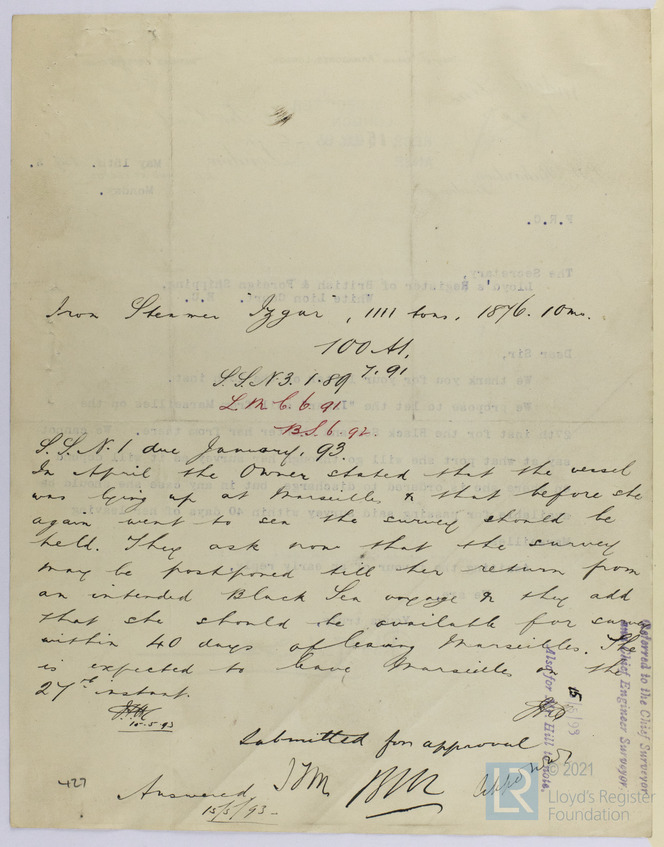 Iron Steamer Izgur, 1111 tons, 1876. 10mo.
100 A1.
S.S.N 3. 1.89 7.91
L.M.C. 6.91
B.S. 6.92.
S.S.N. 1 due January, 93.
In April the Owner stated that the vessel
was lying up at Marseilles & that before she
again went to sea the survey should be
held. They ask now that the survey
may be postponed till her return from
an intended Black Sea voyage & they add
that she should be available for survey
within 40 days of leaving Marseilles. She
is expected to leave Marseilles on the
27th instant.
15.5.93
Submitted for approval
Answered
15/5/93
427
Referred to the Chief Surveyor
and Chief Engineer Surveyor.
Also for Mr. Hill to note.
© 2021
LR
Lloyd's Register
Foundation